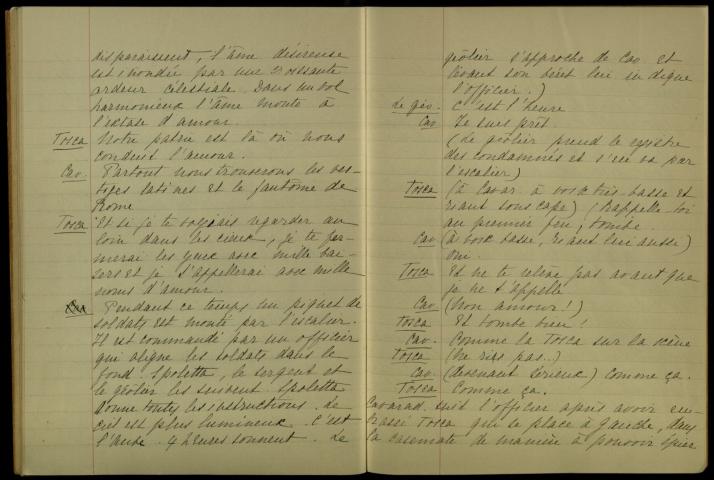 disparaissent, l'âme désireuse
est inondée par une croissante
ardeur célestiale. Dans un vol
harmonieux l'âme monte à
l'extase d'amour.
Tosca Notre patrie est là où nous
conduit l'amour.
Cav. Partout nous trouverons les ves-
tiges latines et le fantôme de
Rome
Tosca Et si je te voyais regarder au
loin dans les cieux, je te fer-
merai les yeux avec mille bai-
sers et je t'appellerai avec mille
noms d'amour.
Pendant ce temps un piquet de
soldats est monté par l'escalier.
Il est commandé par un officier
qui aligne les soldats dans le
fond. Spoletta, le sergent et
le geôlier les suivent. Spoletta
donne toutes les instructions. Le
ciel est plus lumineux. C'est
l'aube. 4 heures sonnent. Le
geôlier s'approche de Cav. et
levant son béret lui indique
l'officier.)
Le geo. C'est l'heure
Cav Je suis prêt.
(Le geôlier prend le registre
des condamnés et s'en va par
l'escalier)
Tosca (à Cavar. à voix très basse et
riant sous cape) (Rappelle-toi
au premier feu, tombe.
Cav (à voix basse, riant lui aussi)
Oui.
Tosca Et ne te relève pas avant que
je ne t'appelle
Cav. (Non amour!)
Tosca Et tombe bien!
Cav. Comme la Tosca sur la scène
Tosca (Ne ris pas..)
Cav (devenant sérieux) Comme ça.
Tosca Comme ça.
Cavarad. suit l'officier après avoir em-
brassé Tosca qui se place à gauche, dans
la casemate de manière à pouvoir épier